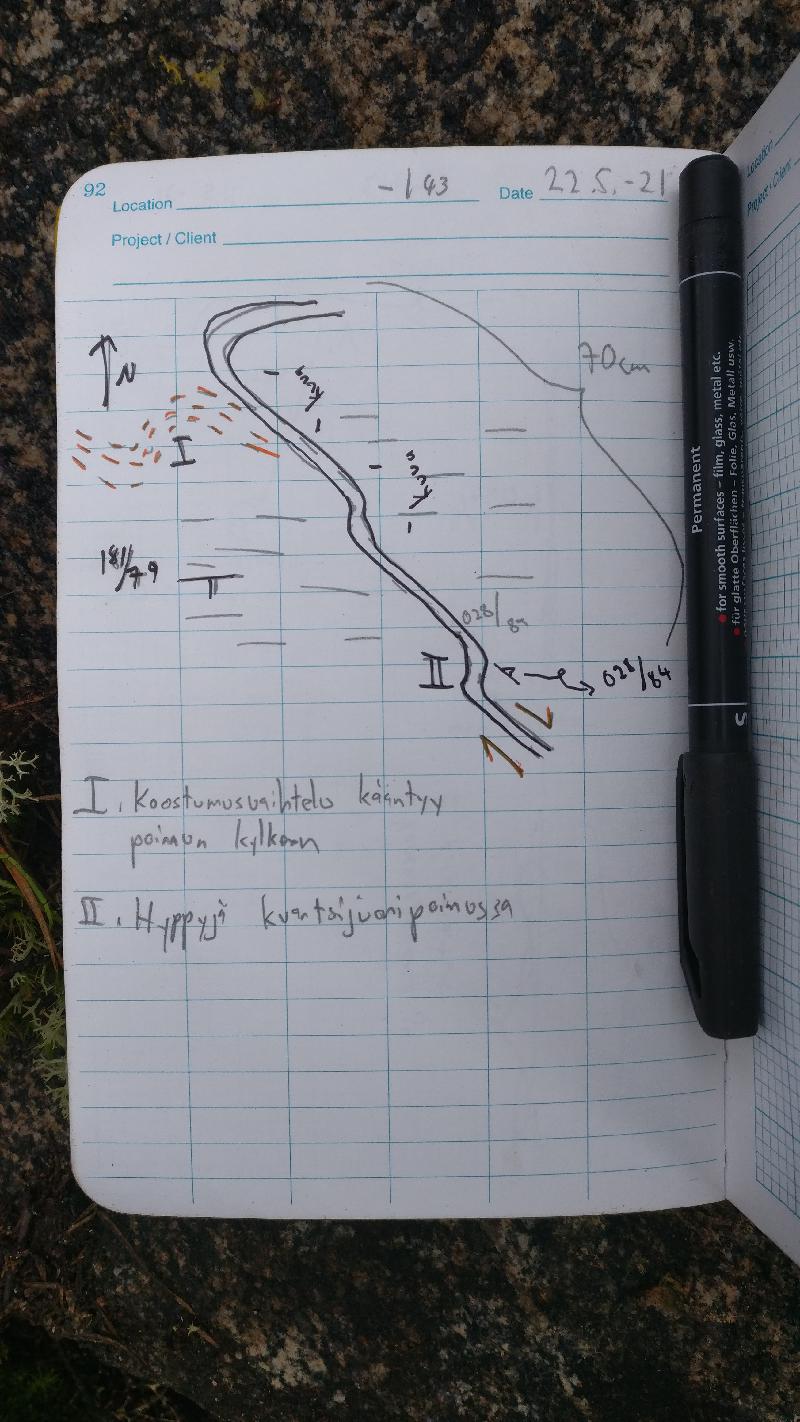 92
Location -143 Date 22.5.-21
Project / Client
N
70cm
I
181/79
028/82
II 028/84
I. Koostumusvaihtelu kääntyy
poimun kylkeen
II. Hyppyjä kvartsijuonipoimussa
Permanent
for smooth surfaces – film, glass, metal etc.
für glatte Oberflächen – Folie, Glas, Metall usw.
S
Location
Project / Client